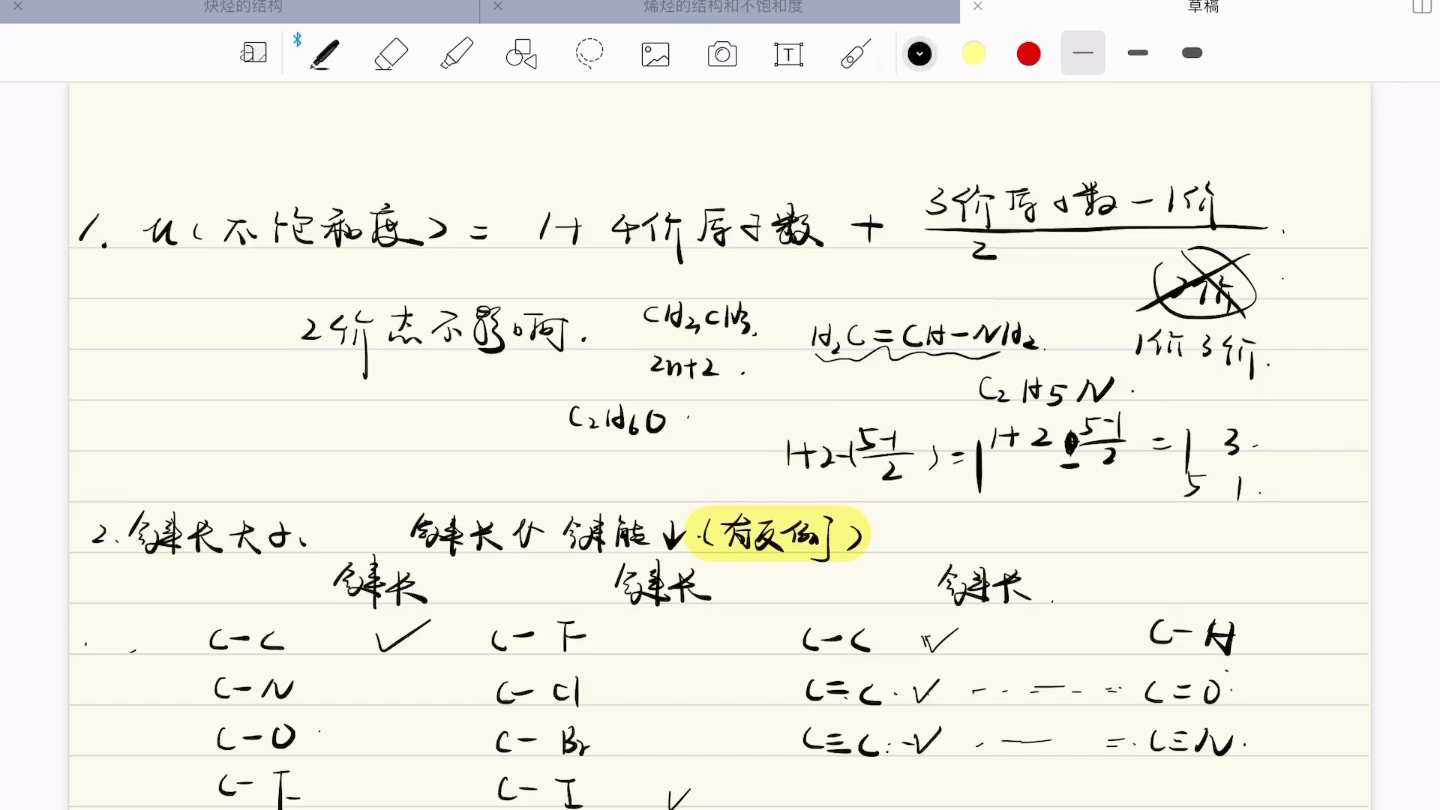 炔烃的结构 烯烃的结构和不饱和度 草稿
1. u(不饱和度) = 1+ 4价原子数 + (3价原子数-1价)/2
2价
2价态不影响. CH3CH3. H2C=CH-NH2 1价3价.
2n+2. C2H5N.
C2H6O
1+2-(5-1/2)=1 1+2-5-1/2=1 3
5 1.
2.键长大小、 键长↑ 键能↓.(有反例)
键长 键长 键长.
C-C ✓ C-F C-C ✓ C-H
C-N C-Cl C=C.✓ C=O
C-O C-Br C≡C.✓ C≡N.
C-F C-I ✓